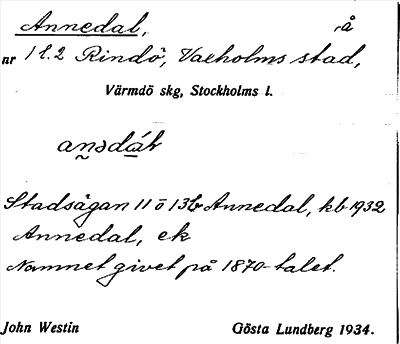 Annedal, rå
nr 1 l. 2 Rindö, Vaxholms stad,
Värmdö skg, Stockholms l.
Stadsägan 11 o 13b Annedal, kb 1932
Annedal, ek
Namnet givet på 1870-talet.
John Westin Gösta Lundberg 1934.